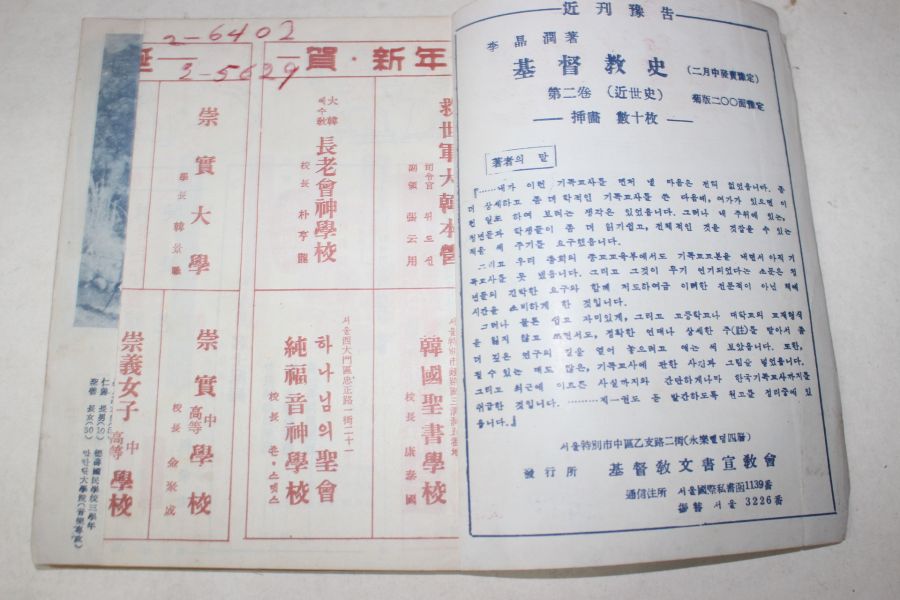 近刊豫告
李晶潤著
基督教史
(二月中發賣豫定)
第二卷 (近世史)
菊版二〇〇面豫定
插畵 數十枚
著者의 말
『……내가 이런 기독교사를 먼저 낼 마음은 전혀 없었읍니다. 좀
더 상세하고 좀 더 학적인 기독교사를 쓴 다음에, 여가가 있으면 이
런 일도 하여 보려는 생각은 있었읍니다. 그러나 내 주위에 있는,
청년들과 학생들이 좀 더 읽기쉽고, 전체적인 것을 것잡을 수 있는
적을 써 주기를 요구했읍니다.
그리고 우리 총회의 종교교육부에서도 기독교교본을 내면서 아직 기
독교사를 못 냈읍니다. 그리고 그것이 무기 연기되었다는 소문은 청
년들의 간박한 요구와 함께 저도하여금 이러한 전문적이 아닌 책에
시간을 소비하게 한 것입니다.
그러나 물론 쉽고 자미있게, 그리고 고등학교나 대학교의 교재형식
을 잃지 않고 쓰면서도, 정확한 연대나 상세한 주(註)를 달아서 좀
더 깊은 연구의 길을 열어 놓으려고 애는 써 보았읍니다. 또한,
될 수 있는 대도 많은, 기독교사에 관한 사진과 그림을 넣었읍니다.
그리도 최근에 이르른 사실까지와 간단하게나마 한국기독교사까지를
취급한 것입니다. ………제一권도 곧 발간하도록 원고를 정리중에 있
읍니다.』
서울特別市中區乙支路二街(永樂삘딩四層)
發行所 基督敎文書宣敎會
通信注所 서울國際私書函1139番
振替 서울 3226番
2-6402
2-5629
誕
賀·新年
救世軍大韓本營
司令官 위도선
副領 張云用
大韓예수敎長老會神學校
校長 朴亨龍
崇實大學
學長 韓景職
서울特別市
韓國聖書學校
校長 康泰國
서울西大門區忠正路一街二十一
하나님의聖會
純福音神學校
校長 존·스텟스
崇實高等中學校
校長 金
崇義女子高等中學校
長男(10) 德壽國民學校三學年
長女(30) 大學院(音樂專攻)